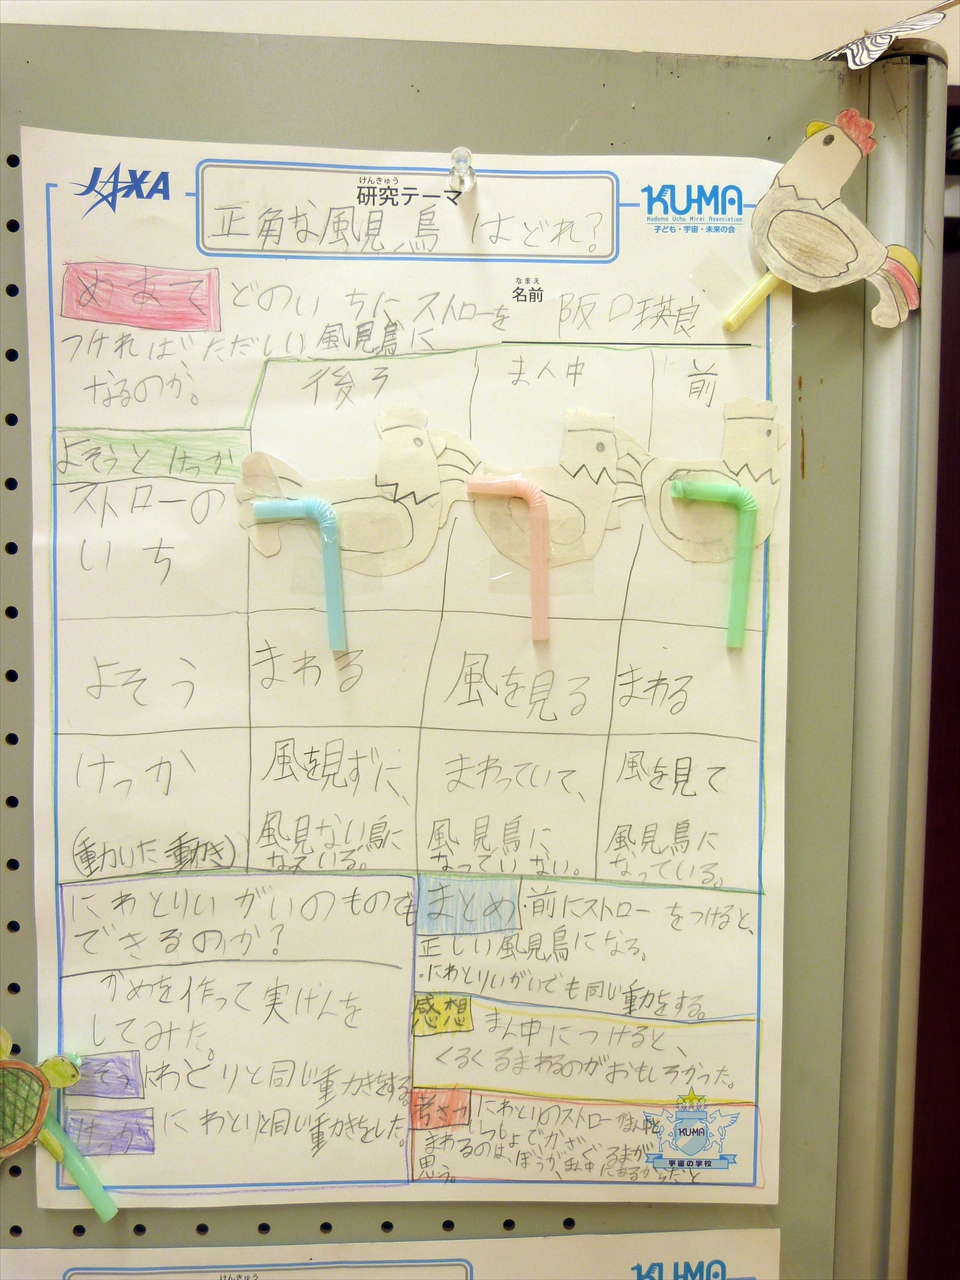 JAXA
けんきゅう
研究テーマ
正角な風見鳥はどれ?
KU-MA
Kodomo Uchu Mirai Association
子ども・宇宙・未来の会
めあて どのいちにストローを
つければ、ただしい風見鳥に
なるのか。
なまえ
名前
阪口瑛良
後ろ
まん中
前
よそうとけっか
ストローの
いち
よそう
まわる
風を見る
まわる
けっか
(動いた動き)
風を見ずに、
風見ない鳥に
なっている。
まわっていて、
風見鳥に
なっていない。
風を見て
風見鳥に
なっている。
にわとりいがいのものでも
できるのか?
かめを作って実けんを
してみた。
にわとりと同じ動きをする。
にわとりと同じ動きをした。
まとめ ・前にストローをつけると、
正しい風見鳥になる。
・にわとりいがいでも同じ動きをする。
感想 まん中につけると、
くるくるまわるのがおもしろかった。
考さつ にわとりのストローがまん中だと
まわるのは、
思う。
KU-MA
宇宙の学校
けんきゅう
KU-MA